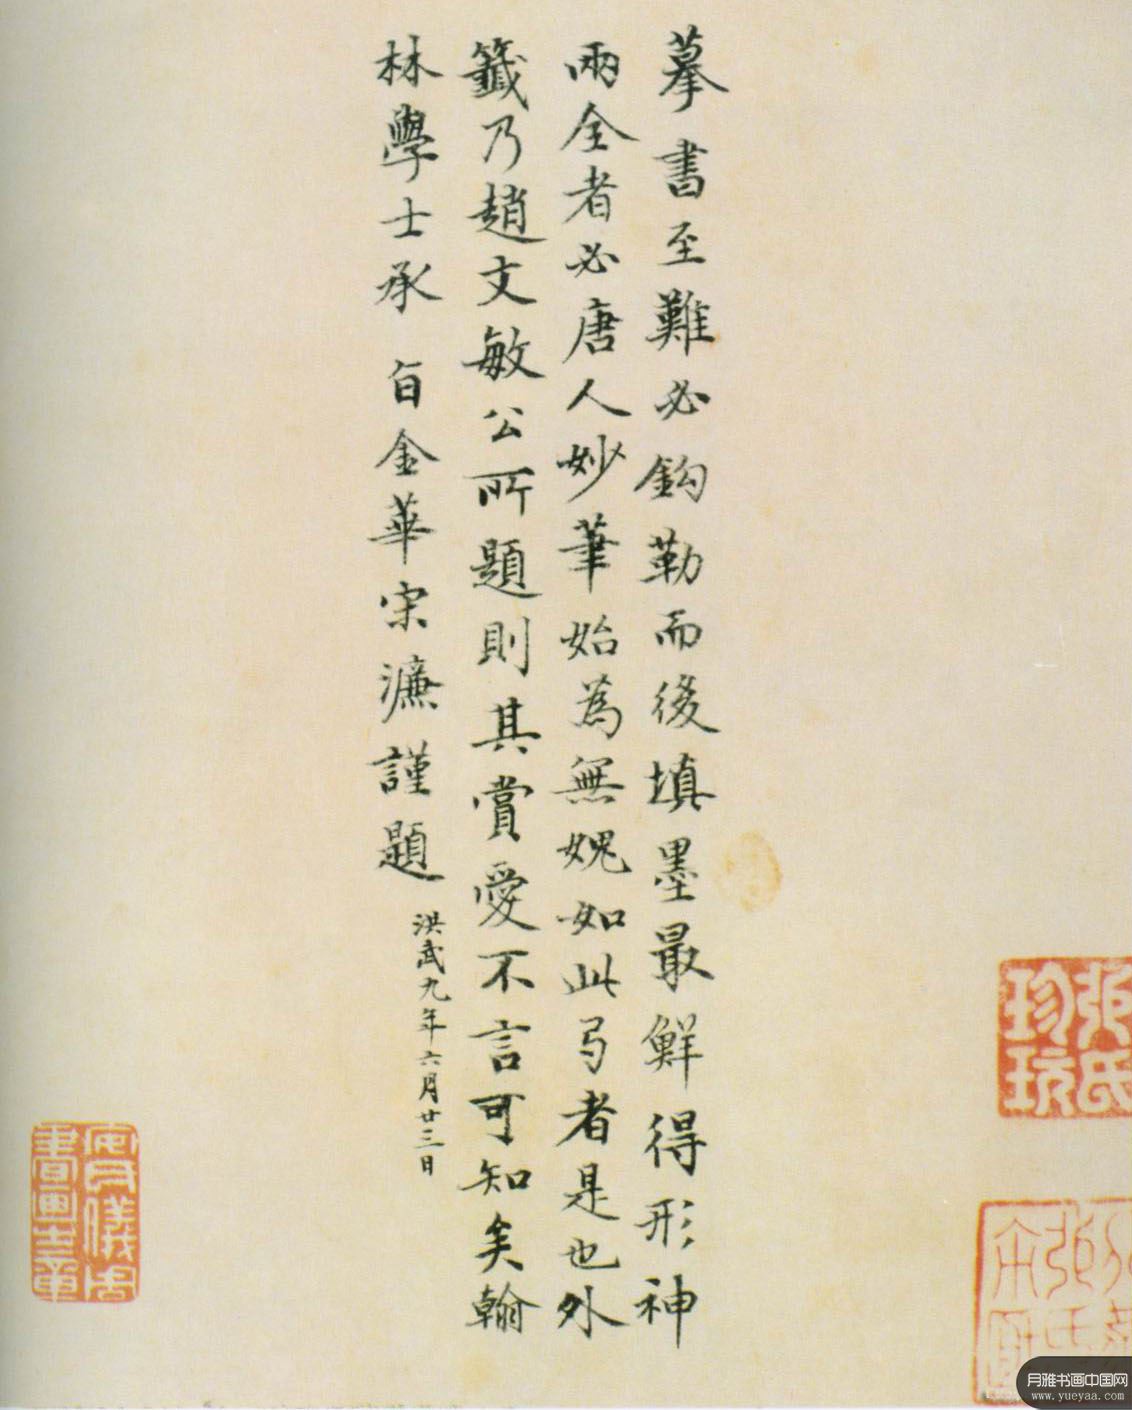 摹書至難必鈎勒而後填墨最鮮得形神
兩全者必唐人妙筆始為無媿如此弓者是也外
籤乃趙文敏公所題則其賞愛不言可知矣翰
林學士承 旨金華宋濂謹題
洪武九年六月廿三日
張氏珍玩
安儀周書畫之章
月雅书画中国网
www.yueyaa.com